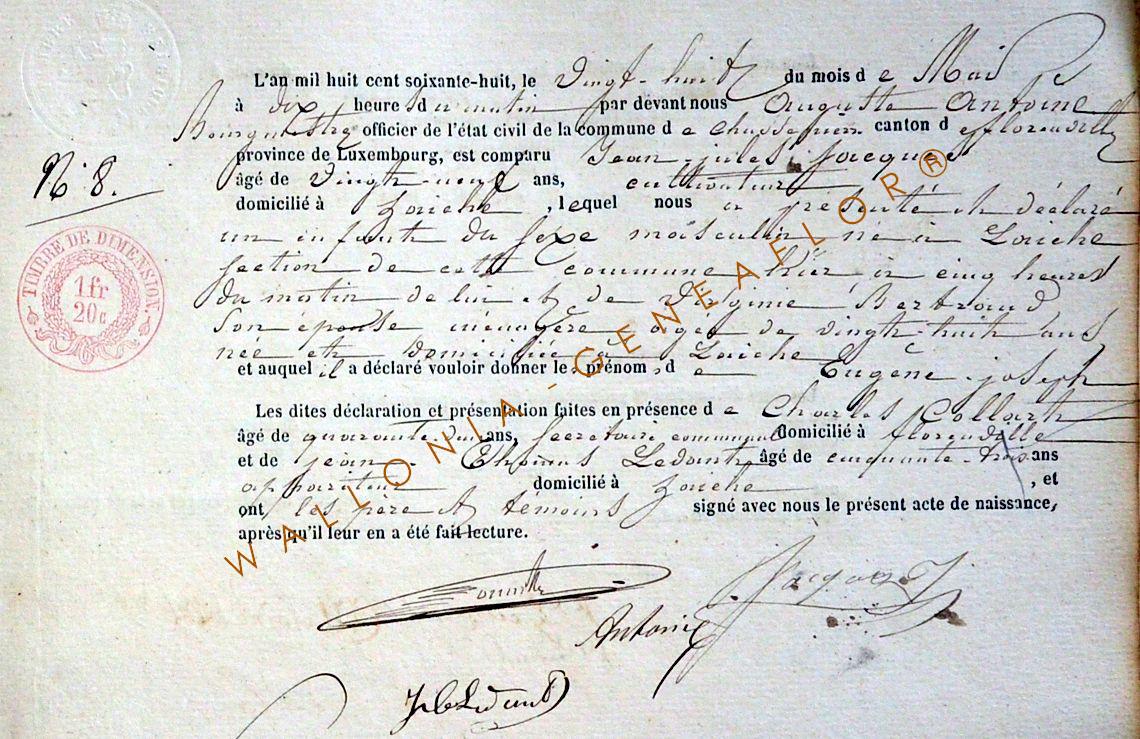 L'an mil huit cent soixante-huit, le vingt-huit du mois de Mai
à dix heures du matin par devant nous Auguste Antoine
Bourgmestre officier de l'état civil de la commune de Chassepierre canton de Florenville
province de Luxembourg, est comparu Jean-Jules Jacques
N° 8.
âgé de vingt-neuf ans, cultivateur
domicilié à Laiche, lequel nous a présenté et déclaré
un enfant du sexe masculin né à Laiche
section de cette commune hier à cinq heures
du matin de lui et de Virginie Bertrand
son épouse ménagère agée de vingt-huit ans
née et domiciliée à Laiche
et auquel il a déclaré vouloir donner les prénoms de Eugène-joseph
Les dites déclaration et présentation faites en présence de Charles Collart
âgé de quarante ans, secrétaire communal domicilié à florenville
et de jean Thomas Ledant âgé de cinquante-trois ans
appariteur domicilié à Laiche, et
ont les père et témoins signé avec nous le présent acte de naissance,
après qu'il leur en a été fait lecture.
TIMBRE DE DIMENSION.
1 fr
20 c
WALLONIA-GENEAFLOR®
Jacques J
Antoine